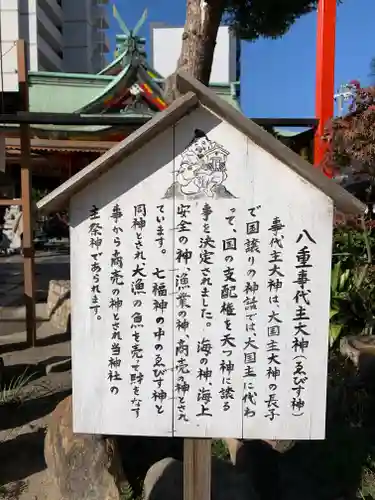 八重事代主大神（ゑびす神）
事代主大神は、大国主大神の長子
で国譲りの神話では、大国主に代わ
って、国の支配権を天つ神に譲る
事を決定されました。海の神、海上
安全の神、漁業の神、商売の神とされ
ています。七福神の中のゑびす神と
同神とされ、大漁の魚を売って財をなす
事から商売の神とされ当神社の
主祭神であられます。